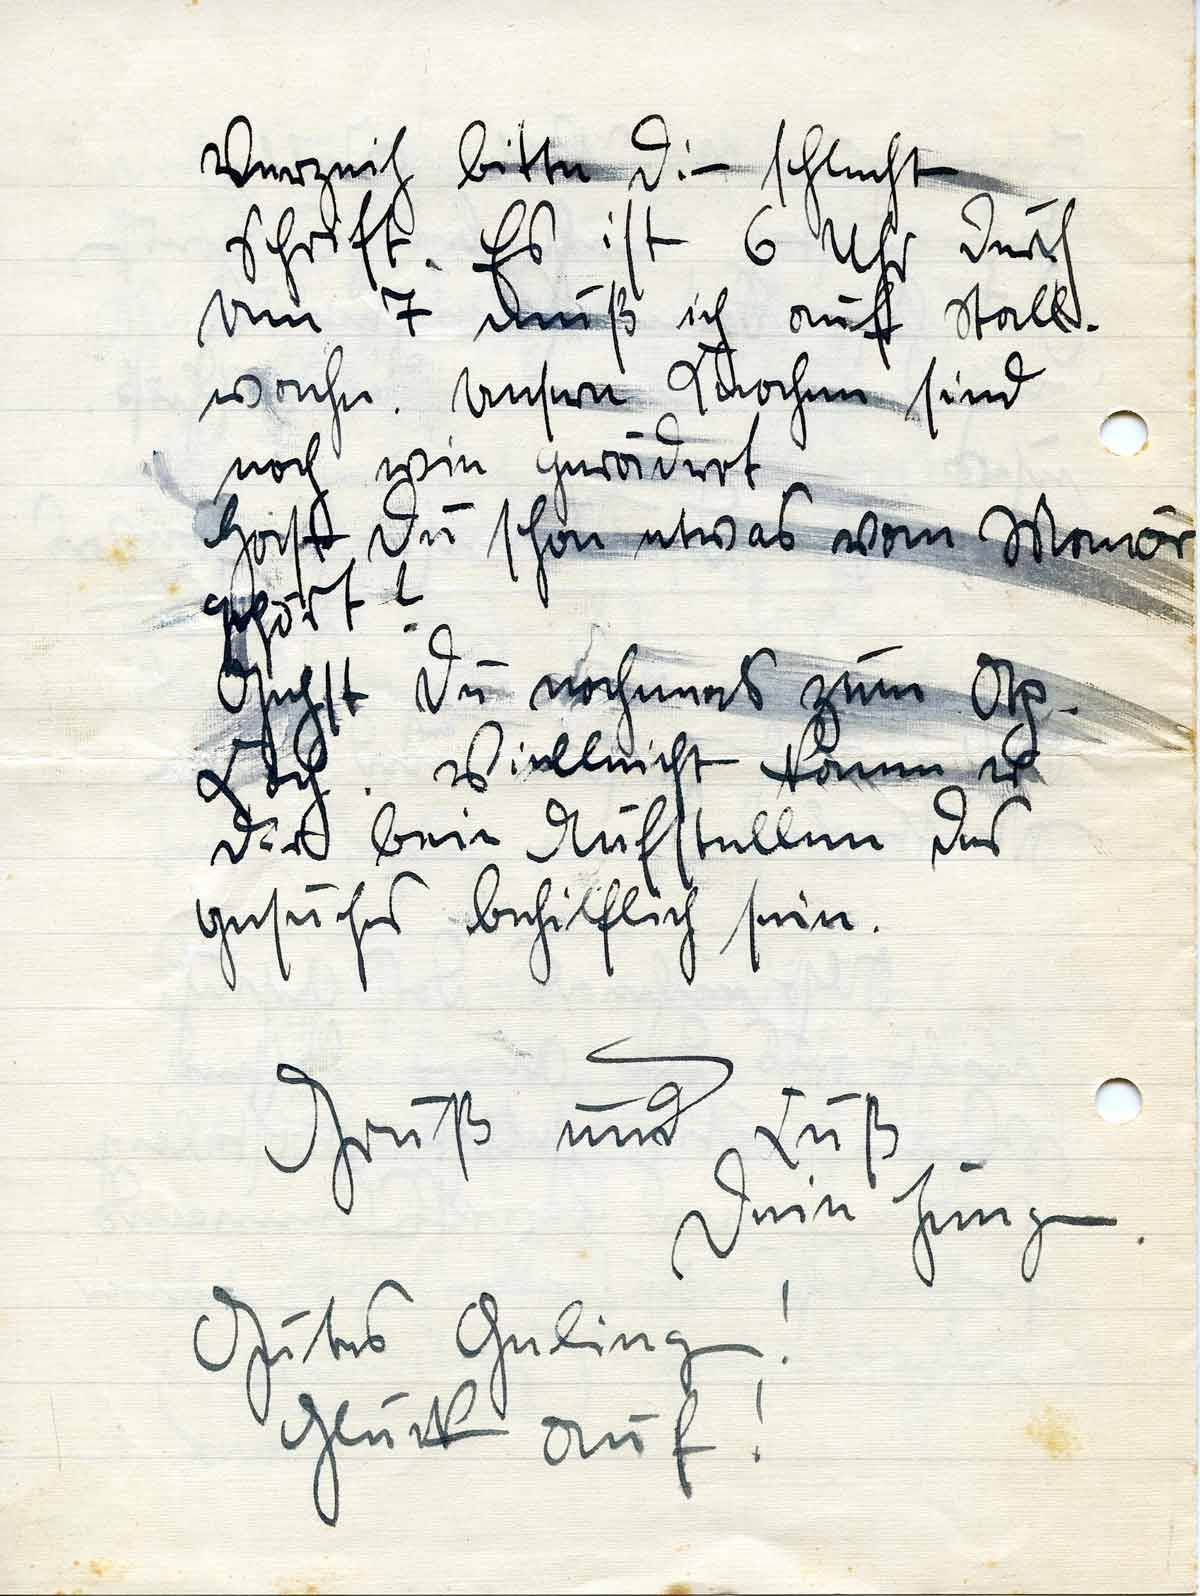 Verzeih bitte die schlecht
Schrift. Es ist 6 Uhr durch
Um 7 muß ich auf Stall-
wache. Unsere Knochen sind
noch wie gerädert
Hast Du schon etwas vom Manör
gehört?
Gehst Du nochmals zum
Koch. Vielleicht kann er
Dir beim Aufstellen des
Gesuches behilflich sein.
Gruß und Kuß
Dein Jung.
Gutes Geling!
Glück auf!